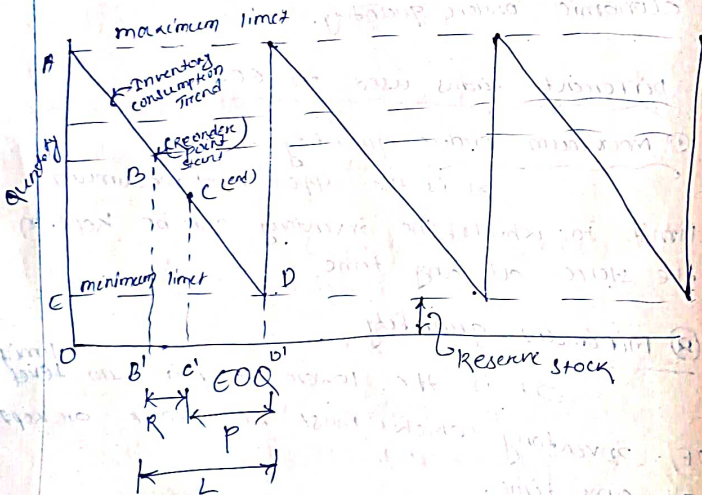 maximum limet
A
Inventory
consumption
Trend
Quntity
(Reorder
point
start)
B
C (end)
minimum limet
D
E
O
B' C' D'
EOQ
Reserve stock
R
P
L